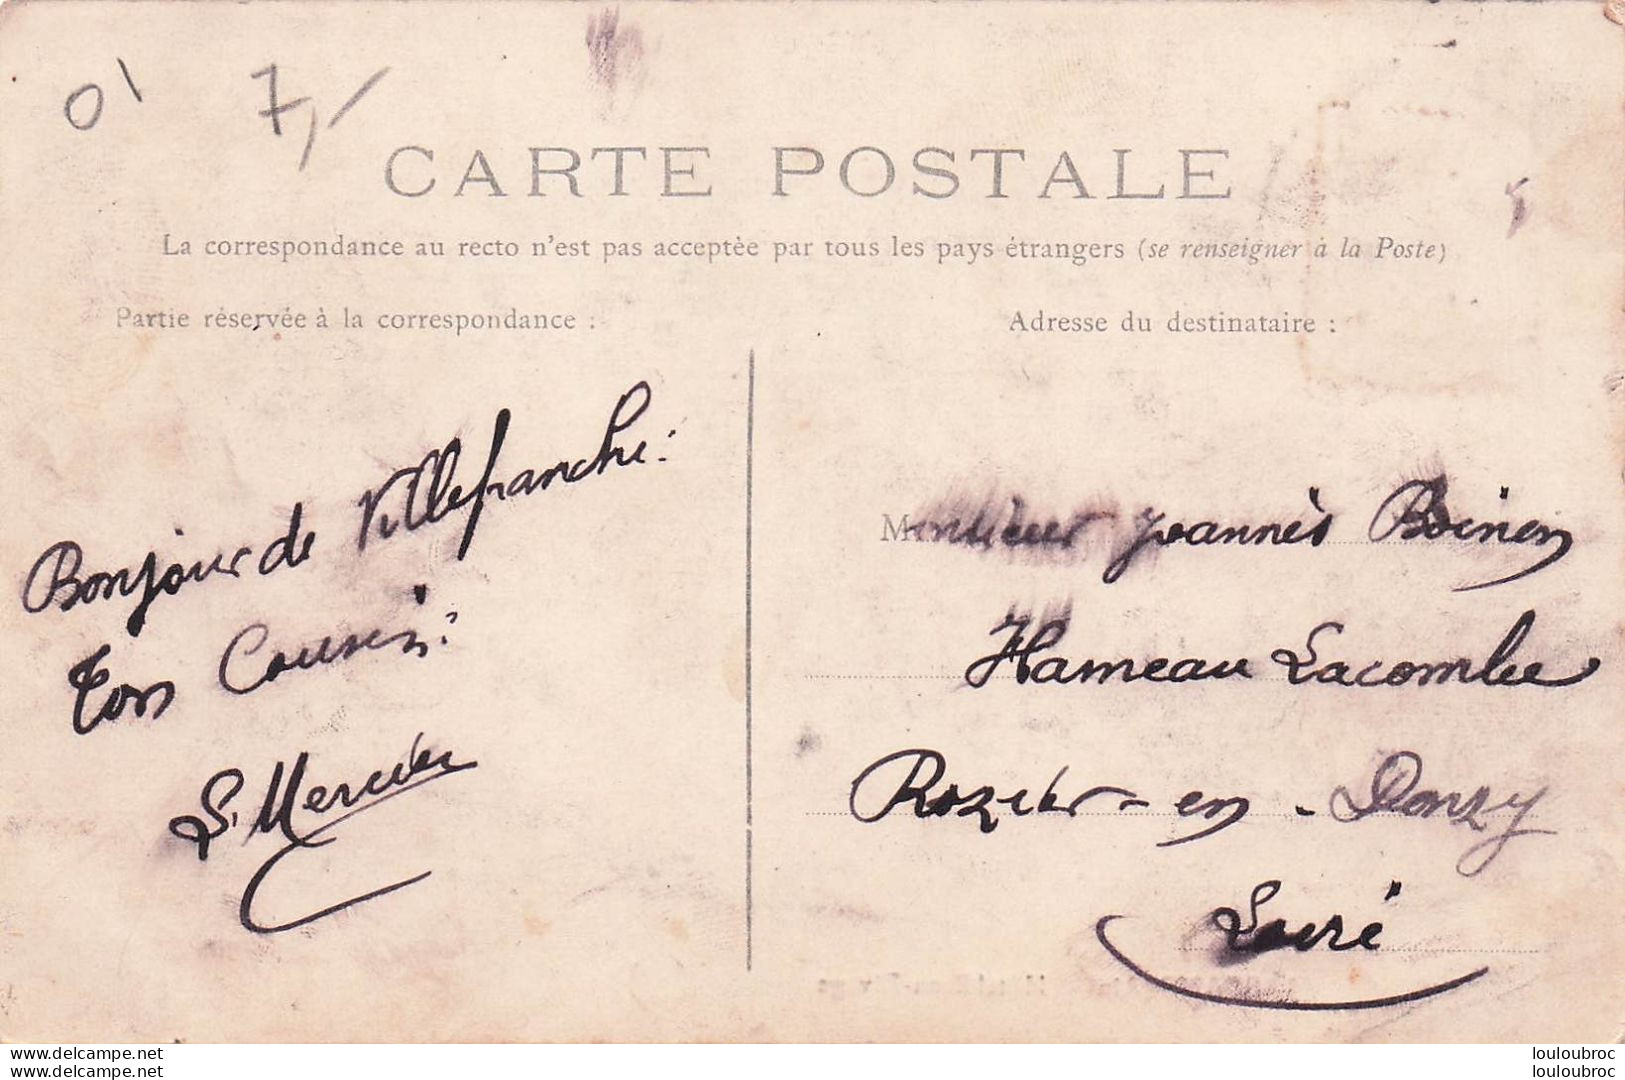 01 7,-
CARTE POSTALE
La correspondance au recto n'est pas acceptée par tous les pays étrangers (se renseigner à la Poste)
Partie réservée à la correspondance :
Bonjour de Villefranche.
Ton Cousin.
S. Mercier
Adresse du destinataire :
Monsieur Joannès Boinon
Hameau Lacombe
Rozier-en-Donzy
Loire
www.delcampe.com
www.delcampe.com
louloubroc
louloubroc